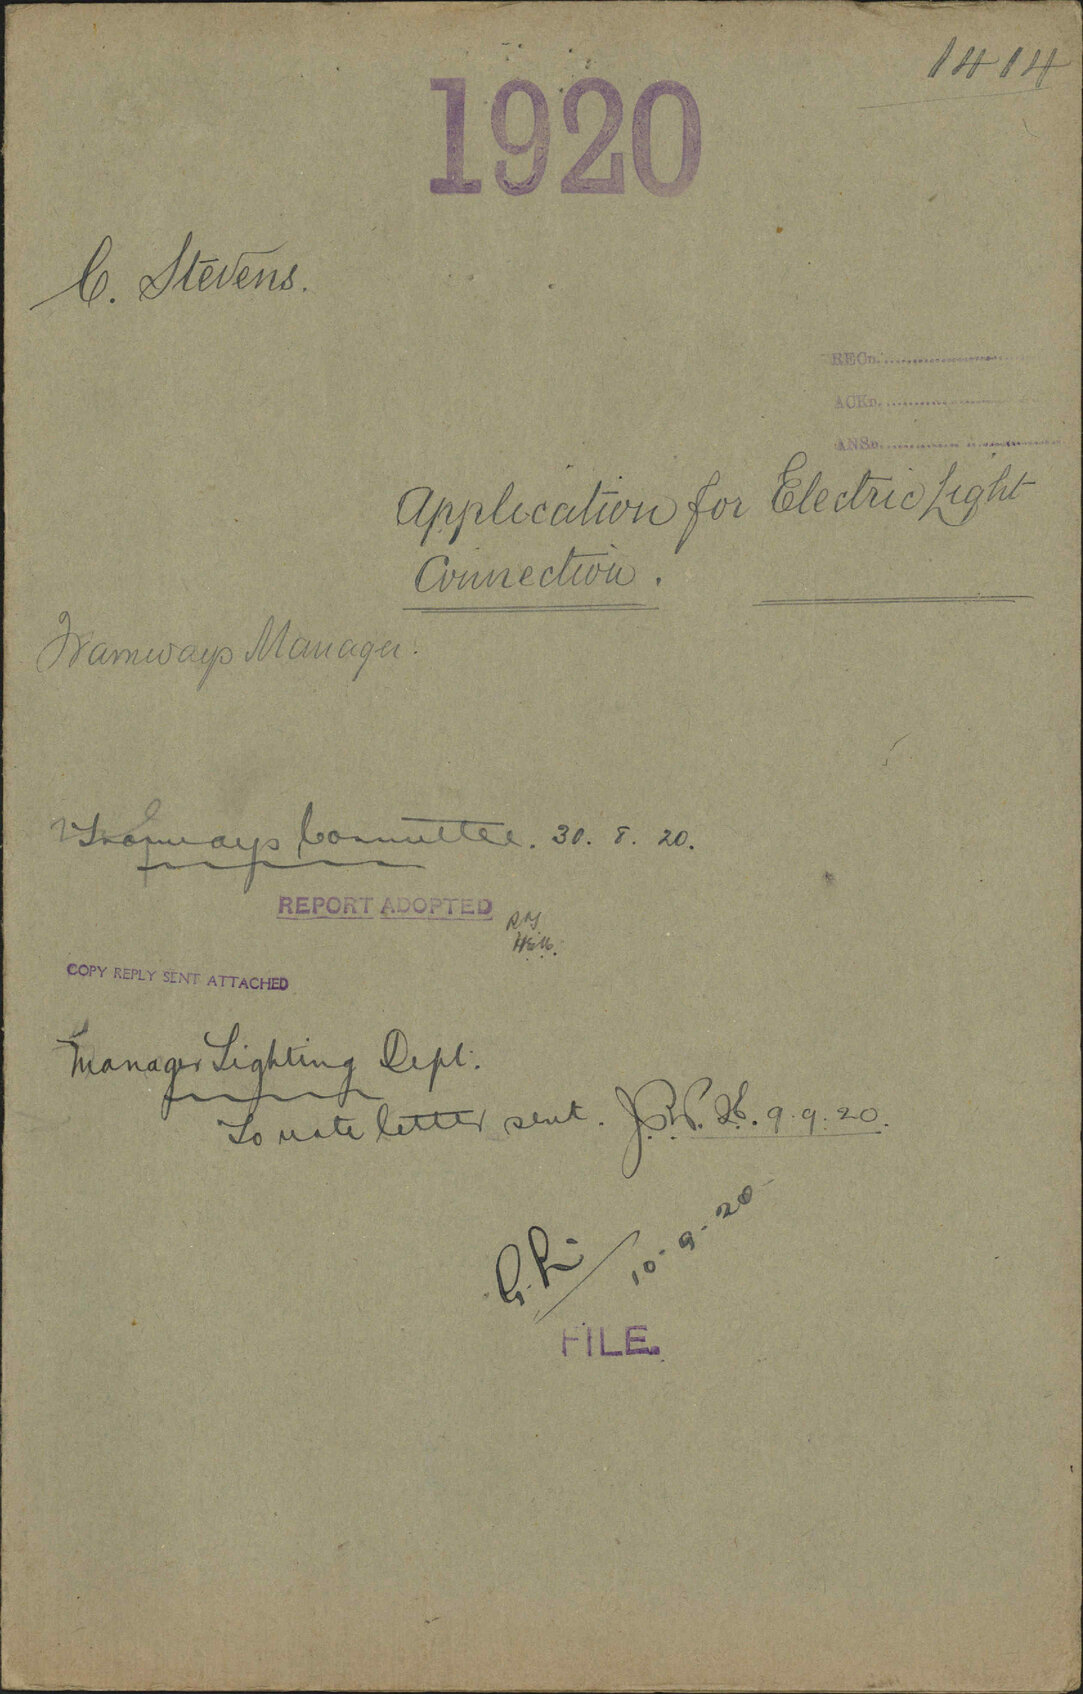 1414
1920
C. Stevens.
RECD.
ACKD.
ANSD.
Application for Electric Light
Connection.
Tramways Manager.
Tramways Committee. 30. 8. 20.
REPORT ADOPTED
COPY REPLY SENT ATTACHED
Manager Lighting Dept.
To note letter sent. 9.9.20.
10-9-20
FILE.